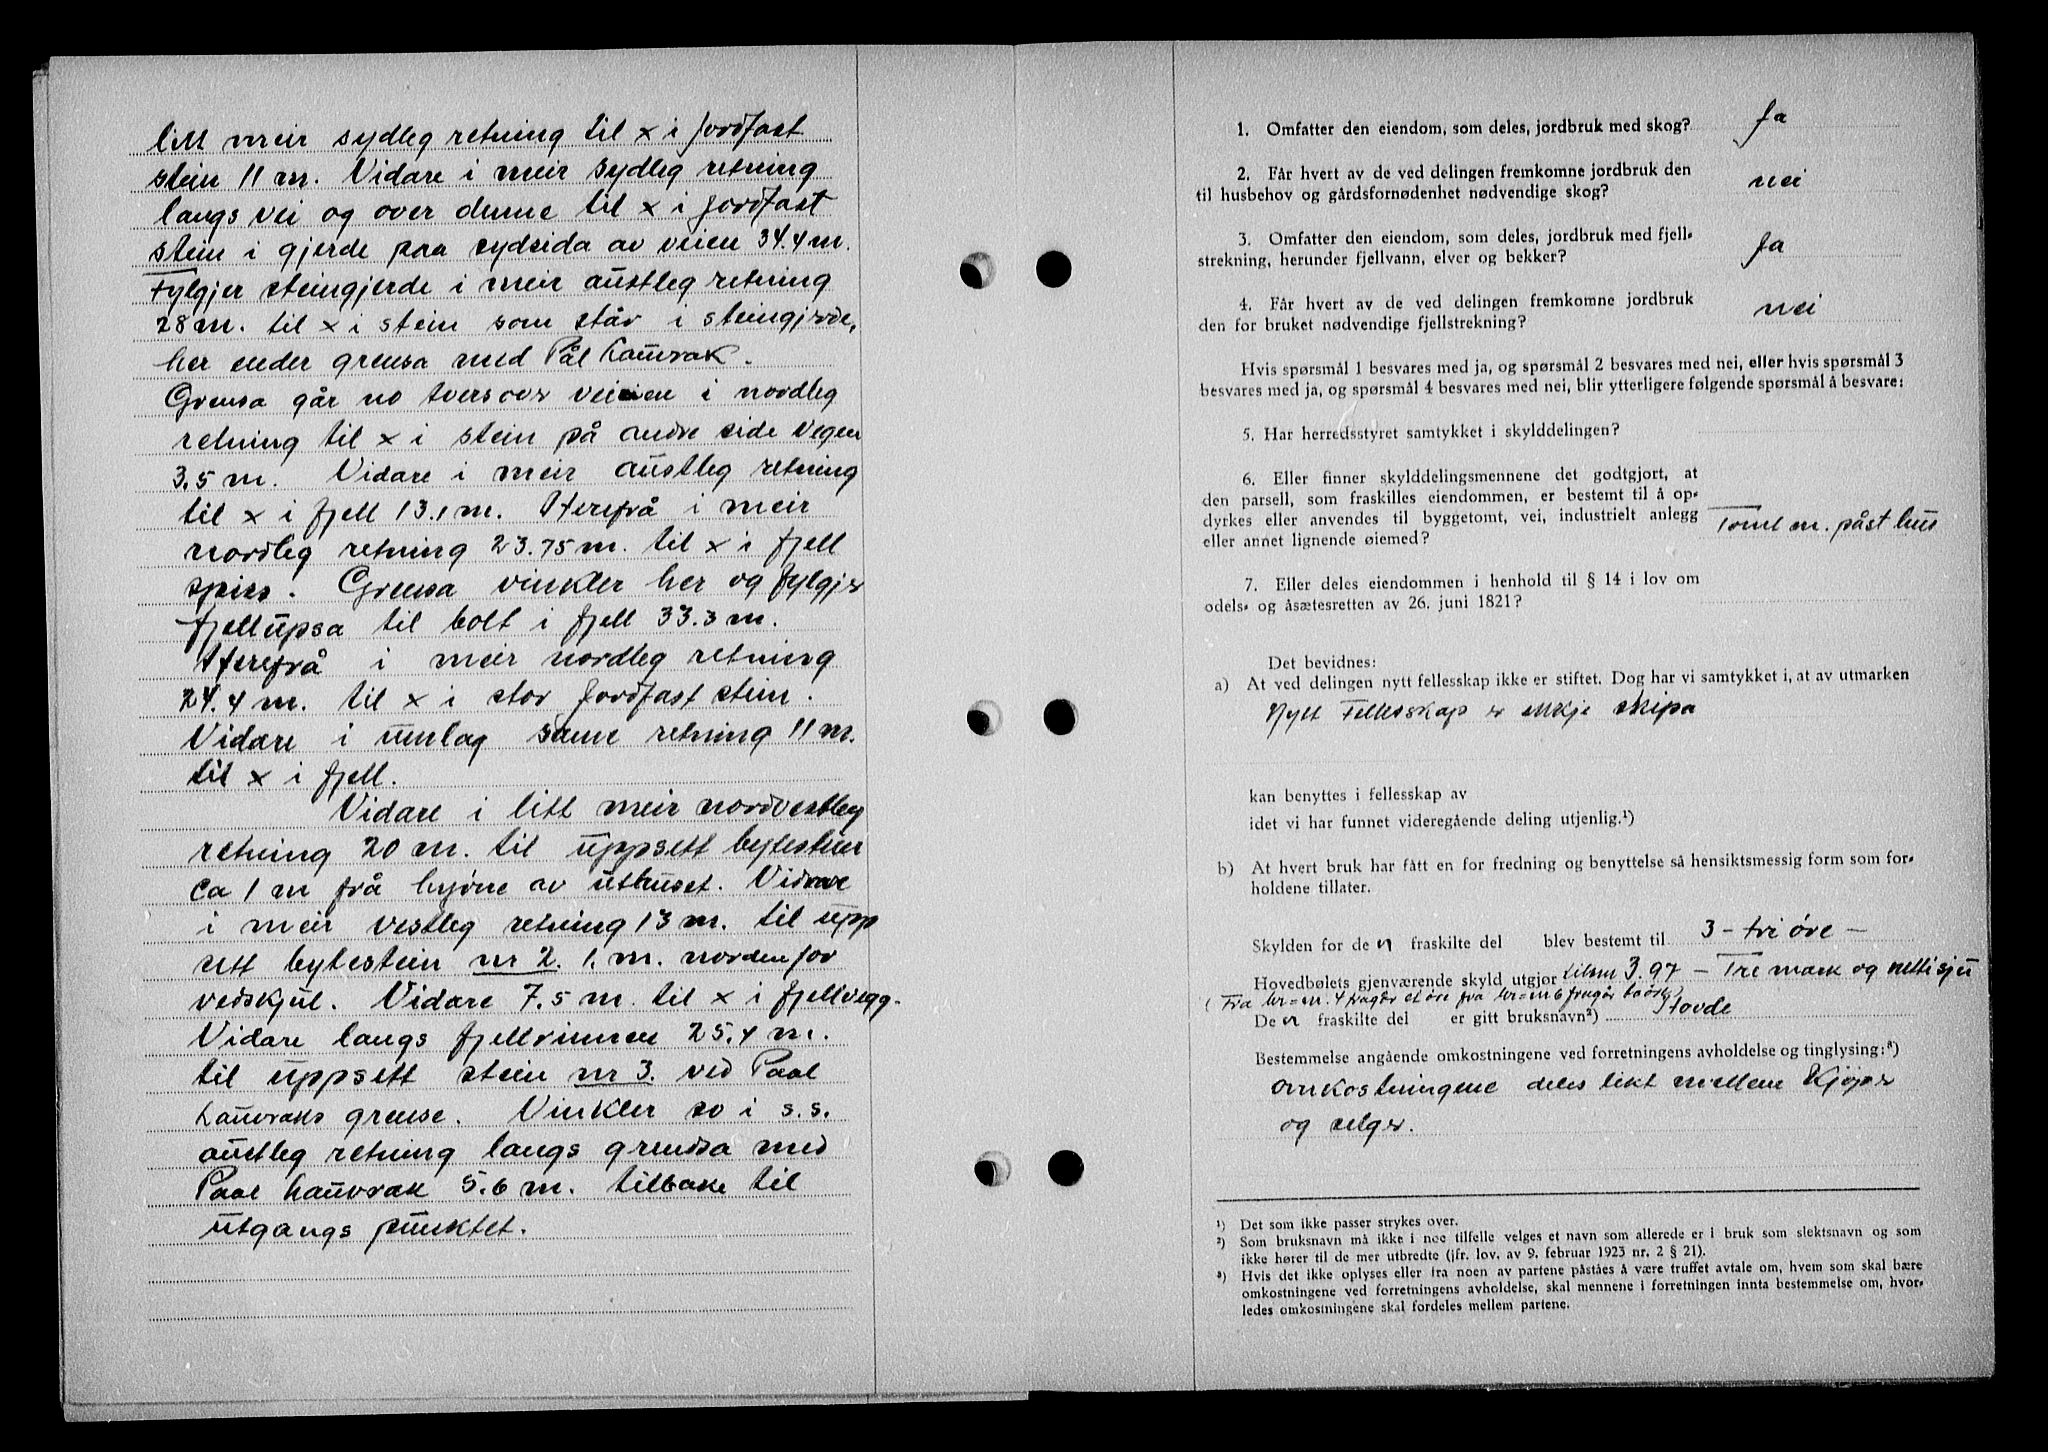 litt meir sydleg retning til x i jordfast
stein 11 m. Vidare i meir sydleg retning
langs vei og over denne til x i jordfast
stein i gjerde paa sydsida av veien 34.4 m.
Fylgjer steingjerde i meir austleg retning
28 m. til x i stein som står i steingjerde,
her ender grensa med Pål Lauvrak.
Grensa går no tversover veien i nordleg
retning til x i stein på andre side vegen
3,5 m. Vidare i meir austleg retning
til x i fjell 13.1 m. Herefrå i meir
nordleg retning 23.75 m. til x i fjell
spiss. Grensa vinkler her og fylgjer
fjellupsa til bolt i fjell 33.3 m.
Herefrå i meir nordleg retning
24.4 m. til x i stor jordfast stein.
Vidare i umlag same retning 11 m.
til x i fjell.
Vidare i litt meir nordvestleg
retning 20 m. til uppsett bytestein
ca 1 m frå hjørne av uthuset. Vidare
i meir vestleg retning 13 m. til upp
sett bytestein nr 2. 1. m. nordenfor
vedskjul. Vidare 7,5 m. til x i fjellvegg.
Vidare langs fjellrinnen 25,4 m.
til uppsett stein nr 3. ved Paal
Lauvraks grense. Vinkler so i s.s.
austleg retning langs grensa med
Paal Lauvrak 5.6 m. tilbake til
utgangs punktet.
1. Omfatter den eiendom, som deles, jordbruk med skog? Ja
2. Får hvert av de ved delingen fremkomne jordbruk den
til husbehov og gårdsfornødenhet nødvendige skog? nei
3. Omfatter den eiendom, som deles, jordbruk med fjell-
strekning, herunder fjellvann, elver og bekker? Ja
4. Får hvert av de ved delingen fremkomne jordbruk
den for bruket nødvendige fjellstrekning? nei
Hvis spørsmål 1 besvares med ja, og spørsmål 2 besvares med nei, eller hvis spørsmål 3
besvares med ja, og spørsmål 4 besvares med nei, blir ytterligere følgende spørsmål å besvare:
5. Har herredsstyret samtykket i skylddelingen?
6. Eller finner skylddelingsmennene det godtgjort, at
den parsell, som fraskilles eiendommen, er bestemt til å op-
dyrkes eller anvendes til byggetomt, vei, industrielt anlegg
eller annet lignende øiemed? Tomt m. påst hus
7. Eller deles eiendommen i henhold til § 14 i lov om
odels- og åsætesretten av 26. juni 1821?
Det bevidnes:
a) At ved delingen nytt fellesskap ikke er stiftet. Dog har vi samtykket i, at av utmarken
Nytt Fellesskap er ikkje skipa
kan benyttes i fellesskap av
idet vi har funnet videregående deling utjenlig.¹)
b) At hvert bruk har fått en for fredning og benyttelse så hensiktsmessig form som for-
holdene tillater.
Skylden for de n fraskilte del blev bestemt til 3 - tri øre -
Hovedbølets gjenværende skyld utgjør tilsm 3.97 - Tre mark og nitti sju
(Fra br=nr. 4 fragår et øre fra br=nr 6 fragår to øre)
De n fraskilte del er gitt bruksnavn²) Hovde
Bestemmelse angående omkostningene ved forretningens avholdelse og tinglysing:³)
omkostningene deles likt mellem Kjøper
og selger.
¹) Det som ikke passer strykes over.
²) Som bruksnavn må ikke i noe tilfelle velges et navn som allerede er i bruk som slektsnavn og som
ikke hører til de mer utbredte (jfr. lov. av 9. februar 1923 nr. 2 § 21).
³) Hvis det ikke oplyses eller fra noen av partene påståes å være truffet avtale om, hvem som skal bære
omkostningene ved forretningens avholdelse, skal mennene i forretningen innta bestemmelse om, hvor-
ledes omkostningene skal fordeles mellem partene.